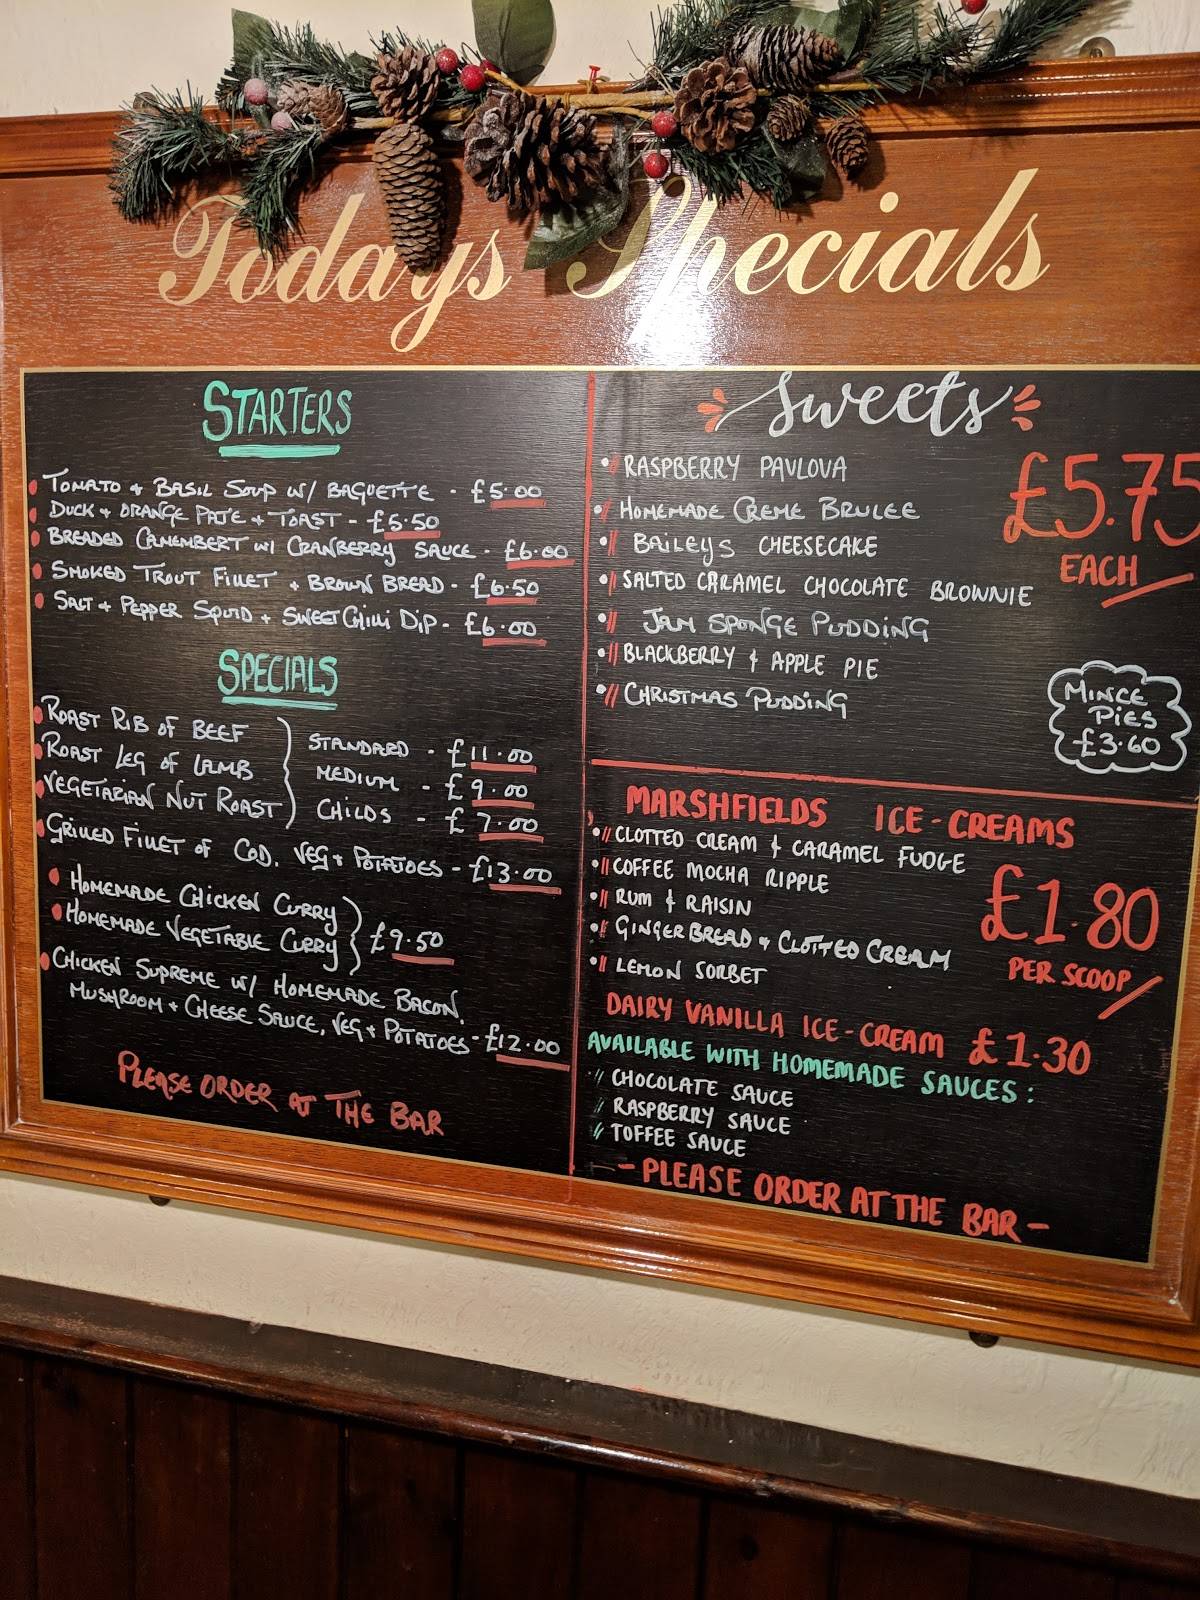 Todays Specials
STARTERS
TOMATO + BASIL SOUP W/ BAGUETTE - £5.00
DUCK + ORANGE PATE + TOAST - £5.50
BREADED CAMEMBERT W/ CRANBERRY SAUCE - £6.00
SMOKED TROUT FILLET + BROWN BREAD - £6.50
SALT + PEPPER SQUID + SWEET CHILLI DIP - £6.00
SPECIALS
ROAST RIB OF BEEF
ROAST LEG OF LAMB
VEGETARIAN NUT ROAST
STANDARD - £11.00
MEDIUM - £9.00
CHILDS - £7.00
GRILLED FILLET OF COD, VEG + POTATOES - £13.00
HOMEMADE CHICKEN CURRY
HOMEMADE VEGETABLE CURRY
£9.50
CHICKEN SUPREME W/ HOMEMADE BACON,
MUSHROOM + CHEESE SAUCE, VEG + POTATOES - £12.00
PLEASE ORDER AT THE BAR
Sweets
RASPBERRY PAVLOVA
HOMEMADE CREME BRULEE
BAILEYS CHEESECAKE
SALTED CARAMEL CHOCOLATE BROWNIE
JAM SPONGE PUDDING
BLACKBERRY & APPLE PIE
CHRISTMAS PUDDING
£5.75
EACH
MINCE
PIES
£3.60
MARSHFIELDS ICE-CREAMS
CLOTTED CREAM & CARAMEL FUDGE
COFFEE MOCHA RIPPLE
RUM & RAISIN
GINGERBREAD + CLOTTED CREAM
LEMON SORBET
£1.80
PER SCOOP
DAIRY VANILLA ICE-CREAM £1.30
AVAILABLE WITH HOMEMADE SAUCES:
CHOCOLATE SAUCE
RASPBERRY SAUCE
TOFFEE SAUCE
- PLEASE ORDER AT THE BAR -